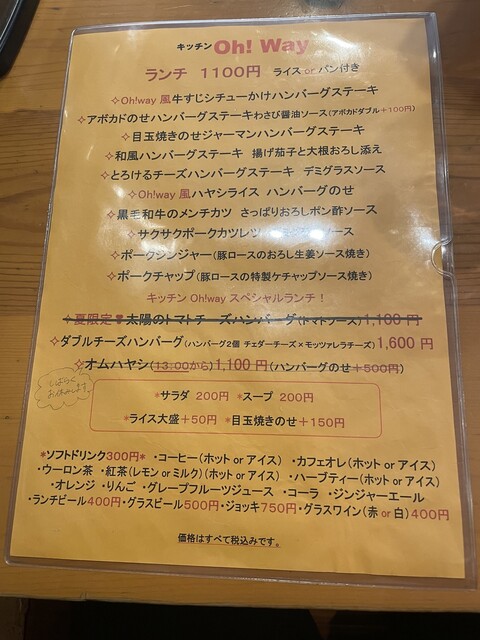 キッチン Oh! Way
ランチ 1100円 ライス or パン付き
✧Oh!way 風牛すじシチューかけハンバーグステーキ
✧アボカドのせハンバーグステーキわさび醤油ソース(アボカドダブル+100円)
✧目玉焼きのせジャーマンハンバーグステーキ
✧和風ハンバーグステーキ 揚げ茄子と大根おろし添え
✧とろけるチーズハンバーグステーキ デミグラスソース
✧Oh!way 風ハヤシライス ハンバーグのせ
✧黒毛和牛のメンチカツ さっぱりおろしポン酢ソース
✧サクサクポークカツレツ ソース
✧ポークジンジャー(豚ロースのおろし生姜ソース焼き)
✧ポークチャップ(豚ロースの特製ケチャップソース焼き)
キッチン Oh!way スペシャルランチ！
✧夏限定❣太陽のトマトチーズハンバーグ(トマトソース)1,100円
✧ダブルチーズハンバーグ(ハンバーグ2個 チェダーチーズ×モッツァレラチーズ)1,600円
✧オムハヤシ(13:00から)1,100円(ハンバーグのせ+500円)
しばらく
お休みします
*サラダ 200円 *スープ 200円
*ライス大盛+50円 *目玉焼きのせ+150円
*ソフトドリンク300円* ・コーヒー(ホット or アイス) ・カフェオレ(ホット or アイス)
・ウーロン茶 ・紅茶(レモン or ミルク)(ホット or アイス) ・ハーブティー(ホット or アイス)
・オレンジ ・りんご ・グレープフルーツジュース ・コーラ ・ジンジャーエール
・ランチビール400円・グラスビール500円・ジョッキ750円・グラスワイン(赤 or 白)400円
価格はすべて税込みです。